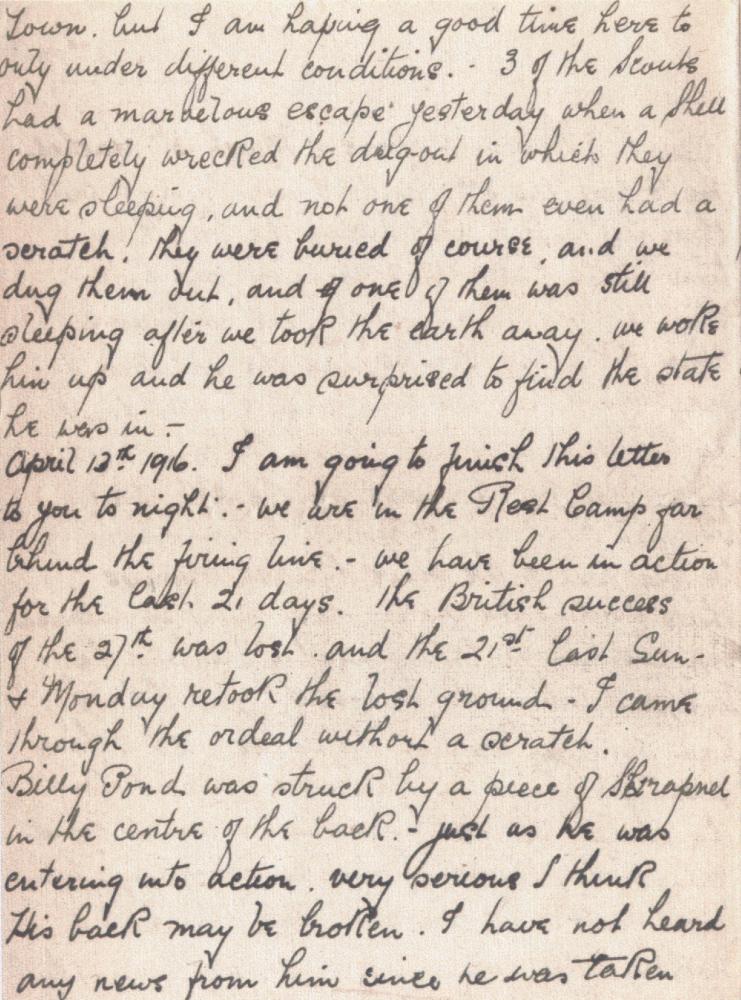 Town. but I am having a good time here to
only under different conditions. - 3 of the Scouts
had a marvelous escape yesterday when a Shell
completely wrecked the dug-out in which they
were sleeping, and not one of them even had a
scratch. they were buried of course, and we
dug them out, and of one of them was still
sleeping after we took the earth away. we woke
him up and he was surprised to find the state
he was in -
April 13th 1916. I am going to finish this letter
to you to night. - we are in the Rest Camp far
behind the firing line. - we have been in action
for the last 21 days. The British success
of the 27th was lost. and the 21st last Sun-
& Monday retook the lost ground - I came
through the ordeal without a scratch.
Billy Pond was struck by a piece of Shrapnel
in the centre of the back. - just as he was
entering into action. very serious I think
His back may be broken. I have not heard
any news from him since he was taken